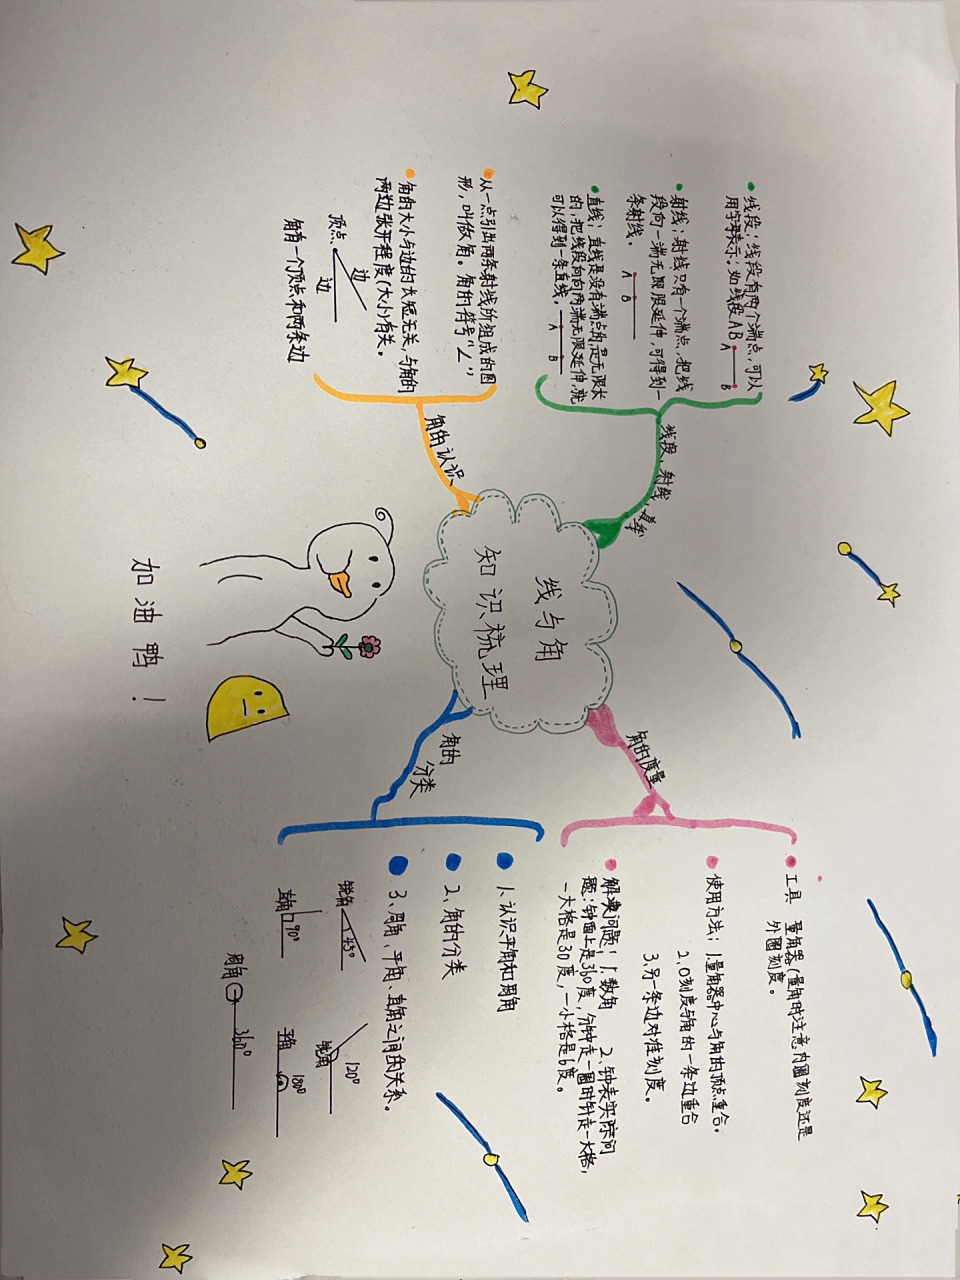 线与角
知识梳理
线段、射线、直线
线段：线段有两个端点，可以
用字母表示；如线段AB
A B
射线：射线只有一个端点，把线
段向一端无限延伸，可得到一
条射线。
A B
直线：直线是没有端点的，是无限长
的，把线段向两端无限延伸，就
可以得到一条直线。
A B
角的认识
从一点引出两条射线所组成的图
形，叫做角。角的符号“∠”
角的大小与边的长短无关，与角的
两边张开程度(大小)有关。
顶点
边
边
角有一个顶点和两条边
角的度量
工具 量角器(量角时注意内圈刻度还是
外圈刻度。
使用方法：1.量角器中心与角的顶点重合。
2.0刻度与角的一条边重合
3.另一条边对准刻度。
解决问题：1.数角 2、钟表实际问
题：钟面上是360度，分钟走一圈时针走一大格，
一大格是30度，一小格是6度。
角的
分类
1、认识平角和周角
2、角的分类
3、周角、平角、直角之间的关系。
锐角 45°
120°
直角 90°
平角 180°
周角 360°
加油鸭！